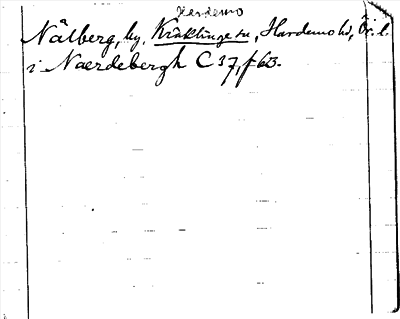 Hardemo
Nälberg, by, Kräklinge sn, Hardemo hd, Ör. l.
i Naerdebergh C 37, f 63.